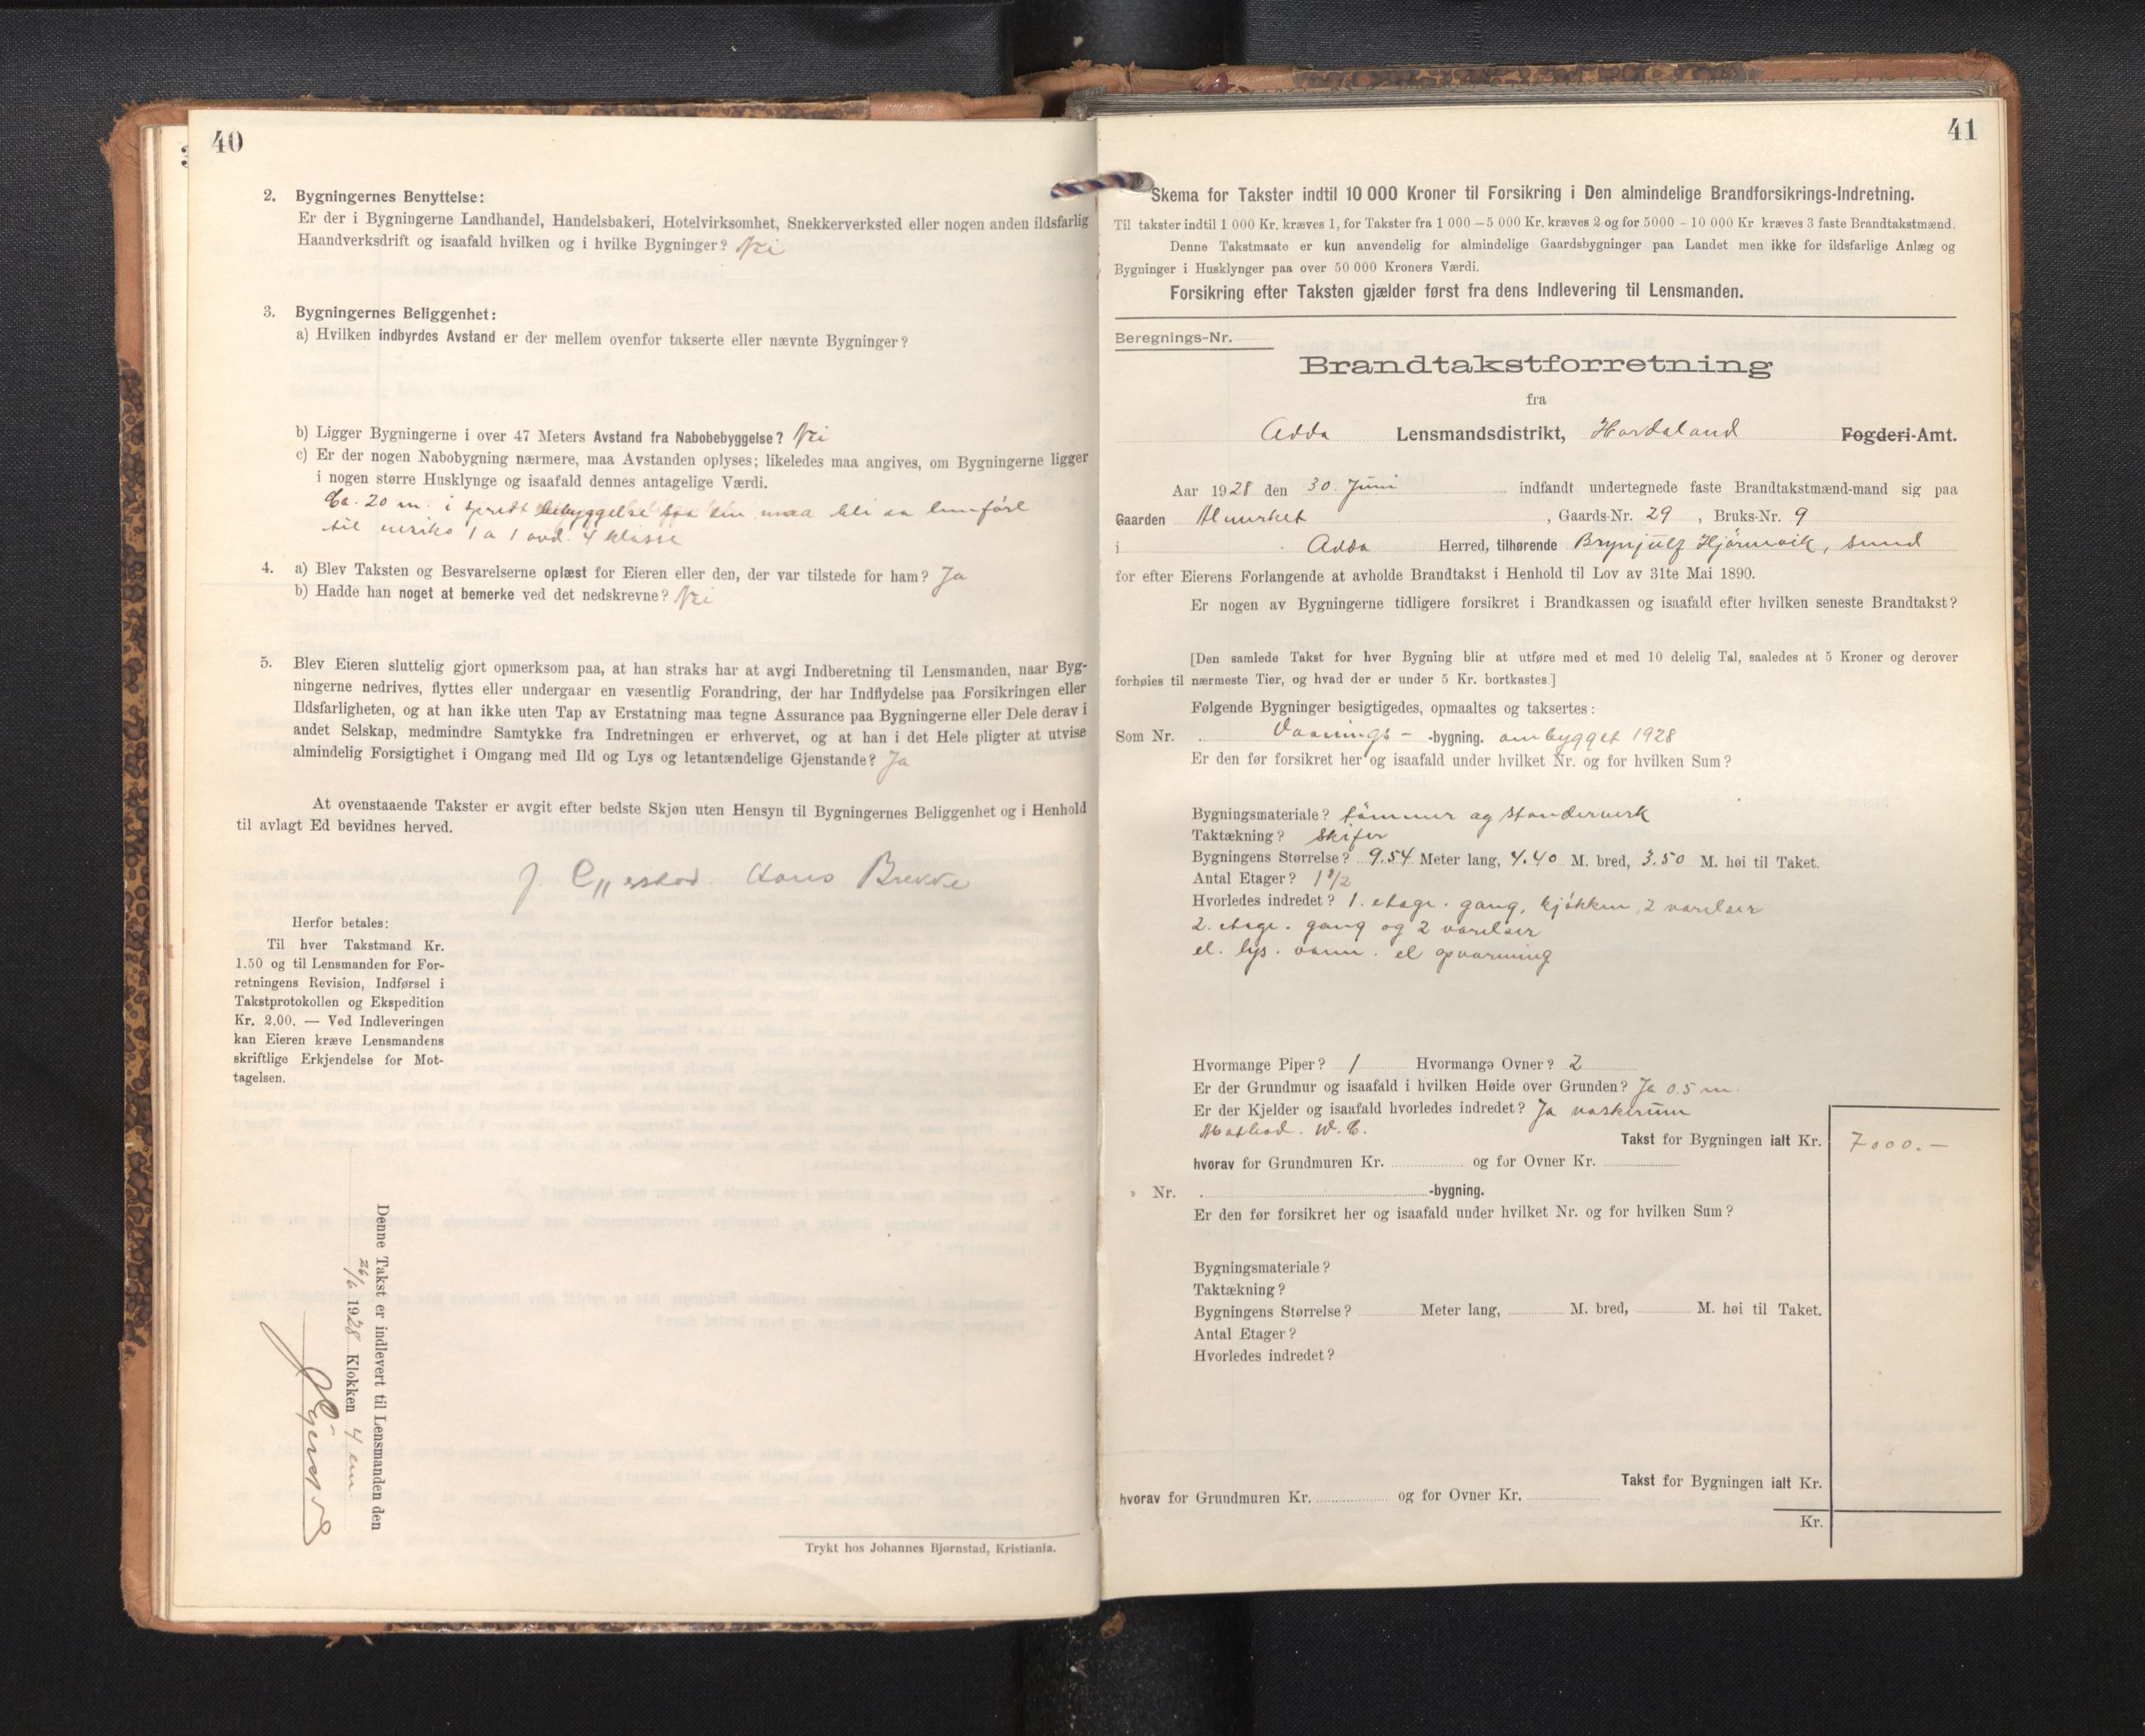 40
2. Bygningernes Benyttelse:
Er der i Bygningerne Landhandel, Handelsbakeri, Hotelvirksomhet, Snekkerverksted eller nogen anden ildsfarlig
Haandverksdrift og isaafald hvilken og i hvilke Bygninger? Nei
3. Bygningernes Beliggenhet:
a) Hvilken indbyrdes Avstand er der mellem ovenfor takserte eller nævnte Bygninger?
b) Ligger Bygningerne i over 47 Meters Avstand fra Nabobebyggelse? Nei
c) Er der nogen Nabobygning nærmere, maa Avstanden oplyses; likeledes maa angives, om Bygningerne ligger
i nogen større Husklynge og isaafald dennes antagelige Værdi.
Ca. 20 m. i spredt bebyggelse som maa bli
til 1 a 1 avd. 4 klasse
4. a) Blev Taksten og Besvarelserne oplæst for Eieren eller den, der var tilstede for ham? Ja
b) Hadde han noget at bemerke ved det nedskrevne? Nei
5. Blev Eieren sluttelig gjort opmerksom paa, at han straks har at avgi Indberetning til Lensmanden, naar Byg-
ningerne nedrives, flyttes eller undergaar en væsentlig Forandring, der har Indflydelse paa Forsikringen eller
Ildsfarligheten, og at han ikke uten Tap av Erstatning maa tegne Assurance paa Bygningerne eller Dele derav i
andet Selskap, medmindre Samtykke fra Indretningen er erhvervet, og at han i det Hele pligter at utvise
almindelig Forsigtighet i Omgang med Ild og Lys og letantændelige Gjenstande? Ja
At ovenstaaende Takster er avgit efter bedste Skjøn uten Hensyn til Bygningernes Beliggenhet og i Henhold
til avlagt Ed bevidnes herved.
J. Hans Brekke
Herfor betales:
Til hver Takstmand Kr.
1.50 og til Lensmanden for For-
retningens Revision, Indførsel i
Takstprotokollen og Ekspedition
Kr. 2.00. — Ved Indleveringen
kan Eieren kræve Lensmandens
skriftlige Erkjendelse for Mot-
tagelsen.
Denne Takst er indlevert til Lensmanden den
26/6 1928 Klokken 4 em
Trykt hos Johannes Bjørnstad, Kristiania.
41
Skema for Takster indtil 10 000 Kroner til Forsikring i Den almindelige Brandforsikrings-Indretning.
Til takster indtil 1 000 Kr. kræves 1, for Takster fra 1 000 – 5 000 Kr. kræves 2 og for 5000 – 10 000 Kr kræves 3 faste Brandtakstmænd.
Denne Takstmaate er kun anvendelig for almindelige Gaardsbygninger paa Landet men ikke for ildsfarlige Anlæg og
Bygninger i Husklynger paa over 50 000 Kroners Værdi.
Forsikring efter Taksten gjælder først fra dens Indlevering til Lensmanden.
Beregnings-Nr.
Brandtakstforretning
fra
Odda Lensmandsdistrikt, Hordaland Fogderi-Amt.
Aar 1928 den 30. Juni indfandt undertegnede faste Brandtakstmænd-mand sig paa
Gaarden Almerket, Gaards-Nr. 29, Bruks-Nr. 9
i Odda Herred, tilhørende Brynjulf Hjörnevik, smed
for efter Eierens Forlangende at avholde Brandtakst i Henhold til Lov av 31te Mai 1890.
Er nogen av Bygningerne tidligere forsikret i Brandkassen og isaafald efter hvilken seneste Brandtakst?
[Den samlede Takst for hver Bygning blir at utføre med et med 10 delelig Tal, saaledes at 5 Kroner og derover
forhøies til nærmeste Tier, og hvad der er under 5 Kr. bortkastes.]
Følgende Bygninger besigtigedes, opmaaltes og taksertes:
Som Nr. . Vaanings- -bygning. ombygget 1928
Er den før forsikret her og isaafald under hvilket Nr. og for hvilken Sum?
Bygningsmateriale? tömmer og standerverk
Taktækning? Skifer
Bygningens Størrelse? 9.54 Meter lang, 4.40 M. bred, 3.50 M. høi til Taket.
Antal Etager? 1 1/2
Hvorledes indredet? 1. etage. gang, kjökken, 2 værelser
2. etage. gang og 2 værelser
el. lys. vann. el opvarming
Hvormange Piper? 1 Hvormange Ovner? 2
Er der Grundmur og isaafald i hvilken Høide over Grunden? Ja 0.5 m
Er der Kjelder og isaafald hvorledes indredet? Ja vaskerum
Matbod. W.C.
Takst for Bygningen ialt Kr. 7000.-
hvorav for Grundmuren Kr. og for Ovner Kr.
» Nr. . -bygning.
Er den før forsikret her og isaafald under hvilket Nr. og for hvilken Sum?
Bygningsmateriale?
Taktækning?
Bygningens Størrelse? Meter lang, M. bred, M. høi til Taket.
Antal Etager?
Hvorledes indredet?
Takst for Bygningen ialt Kr.
hvorav for Grundmuren Kr. og for Ovner Kr.
Kr.